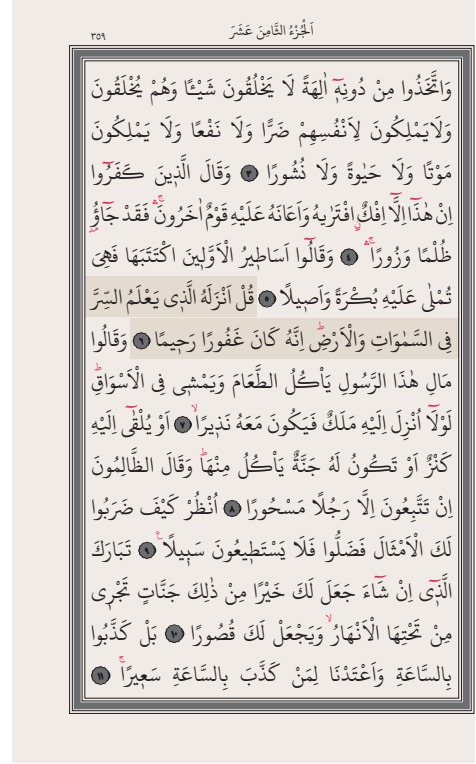 اَلْجُزْءُ الثَّامِنَ عَشَرَ
٣٥٩
وَاتَّخَذُوا مِنْ دُونِهٖٓ اٰلِهَةً لَا يَخْلُقُونَ شَيْـًٔا وَهُمْ يُخْلَقُونَ
وَلَايَمْلِكُونَ لِاَنْفُسِهِمْ ضَرًّا وَلَا نَفْعًا وَلَا يَمْلِكُونَ
مَوْتًا وَلَا حَيٰوةً وَلَا نُشُورًا ٣ وَقَالَ الَّذٖينَ كَفَرُٓوا
اِنْ هٰذَٓا اِلَّٓا اِفْكٌۨ افْتَرٰيهُ وَاَعَانَهُ عَلَيْهِ قَوْمٌ اٰخَرُونَۚۛ فَقَدْ جَٓاؤُ۫
ظُلْمًا وَزُورًاۚۛ ٤ وَقَالُٓوا اَسَاطٖيرُ الْاَوَّلٖينَ اكْتَتَبَهَا فَهِىَ
تُمْلٰى عَلَيْهِ بُكْرَةً وَاَصٖيلًا ٥ قُلْ اَنْزَلَهُ الَّذٖى يَعْلَمُ السِّرَّ
فِى السَّمٰوَاتِ وَالْاَرْضِؕ اِنَّهُ كَانَ غَفُورًا رَحٖيمًا ٦ وَقَالُوا
مَالِ هٰذَا الرَّسُولِ يَاْكُلُ الطَّعَامَ وَيَمْشٖى فِى الْاَسْوَاقِؕ
لَوْلَٓا اُنْزِلَ اِلَيْهِ مَلَكٌ فَيَكُونَ مَعَهُ نَذٖيرًاۙ ٧ اَوْ يُلْقٰٓى اِلَيْهِ
كَنْزٌ اَوْ تَكُونُ لَهُ جَنَّةٌ يَاْكُلُ مِنْهَاؕ وَقَالَ الظَّالِمُونَ
اِنْ تَتَّبِعُونَ اِلَّا رَجُلًا مَسْحُورًا ٨ اُنْظُرْ كَيْفَ ضَرَبُوا
لَكَ الْاَمْثَالَ فَضَلُّوا فَلَا يَسْتَطٖيعُونَ سَبٖيلًاࣖ ٩ تَبَارَكَ
الَّذٖٓى اِنْ شَٓاءَ جَعَلَ لَكَ خَيْرًا مِنْ ذٰلِكَ جَنَّاتٍ تَجْرٖى
مِنْ تَحْتِهَا الْاَنْهَارُۙ وَيَجْعَلْ لَكَ قُصُورًا ١٠ بَلْ كَذَّبُوا
بِالسَّاعَةِ وَاَعْتَدْنَا لِمَنْ كَذَّبَ بِالسَّاعَةِ سَعٖيرًاۚ ١١